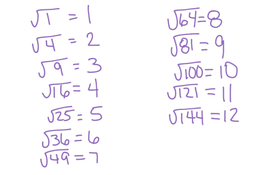 √1 = 1
√4 = 2
√9 = 3
√16 = 4
√25 = 5
√36 = 6
√49 = 7
√64 = 8
√81 = 9
√100 = 10
√121 = 11
√144 = 12